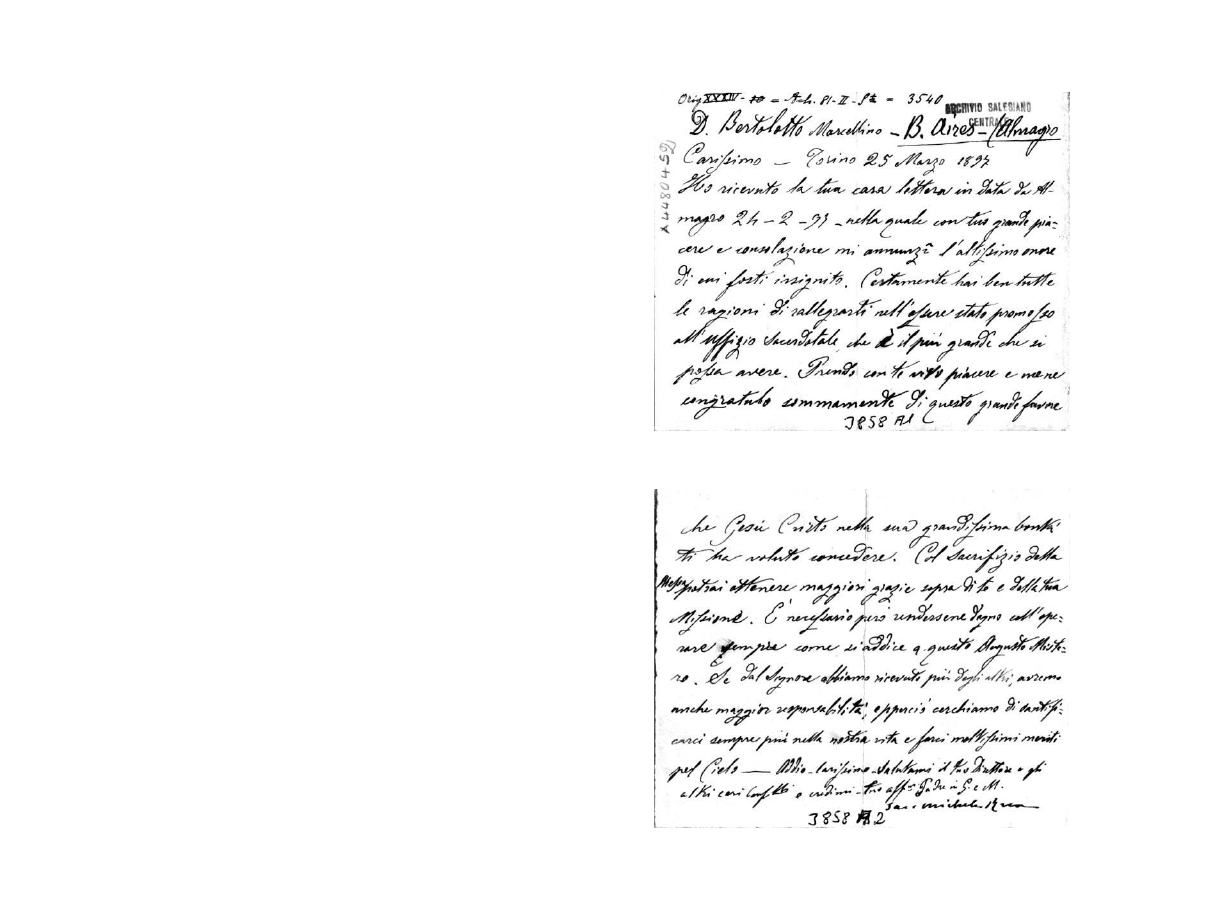 Orig XXXIV - = Arh. 81-II - = 3540
ARCHIVIO SALESIANO
CENTRALE
D. Bertolotto Marcellino - B. Aires - (Almagro
Carissimo - Torino 25 Marzo 1897
Ho ricevuto la tua cara lettera in data da Al-
magro 24 - 2 - 97 - nella quale con tuo grande pia=
cere e consolazione mi annunzî l'altissimo onore
di cui fosti insignito. Certamente hai ben tutte
le ragioni di rallegrarti nell'essere stato promosso
all'uffizio Sacerdotale che è il più grande che si
possa avere. Prendo con te vivo piacere e mene
congratulo sommamente di questo grande favore
3858 A1
A4480459
che Gesù Cristo nella sua grandissima bontà
ti ha voluto concedere. Col Sacrifizio della
Messa potrai ottenere maggiori grazie sopra di te e della tua
Missione. È necessario però rendersene degno coll'ope=
rare sempre come si addice a questo Augusto Miste=
ro. Se dal Signore abbiamo ricevuto più degli altri, avremo
anche maggior responsabilità, epperciò cerchiamo di santifi=
carci sempre più nella nostra vita e farci moltissimi meriti
pel Cielo — Addio carissimo - Salutami il tuo Direttore e gli
altri cari Confllì e credimi - tuo aff.° Padre in G. e M.
Sac. Michele Rua
3858 A 2